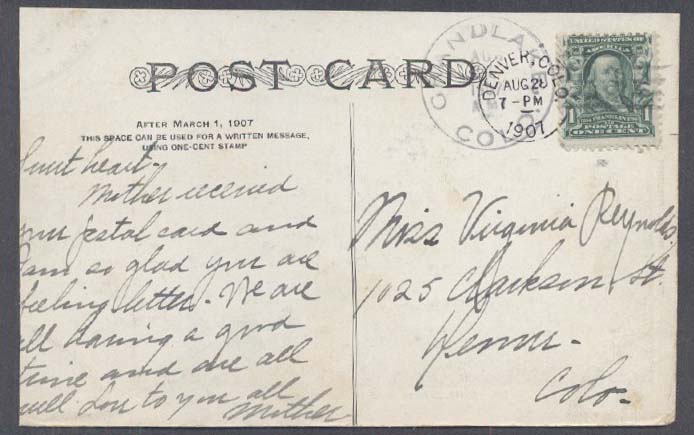 POST CARD
AFTER MARCH 1, 1907
THIS SPACE CAN BE USED FOR A WRITTEN MESSAGE,
USING ONE-CENT STAMP
GRANDLAKE
COLO.
DENVER, COLO.
AUG 28
7-PM
1907
UNITED STATES OF
AMERICA
1 1
POSTAGE
ONE CENT
Sweet heart-
Mother received
your postal card and
I am so glad you are
feeling better. We are
all having a good
time and are all
well. Love to you all
Mother
Miss Virginia Reynolds
1025 Clarkson St.
Denver-
Colo-